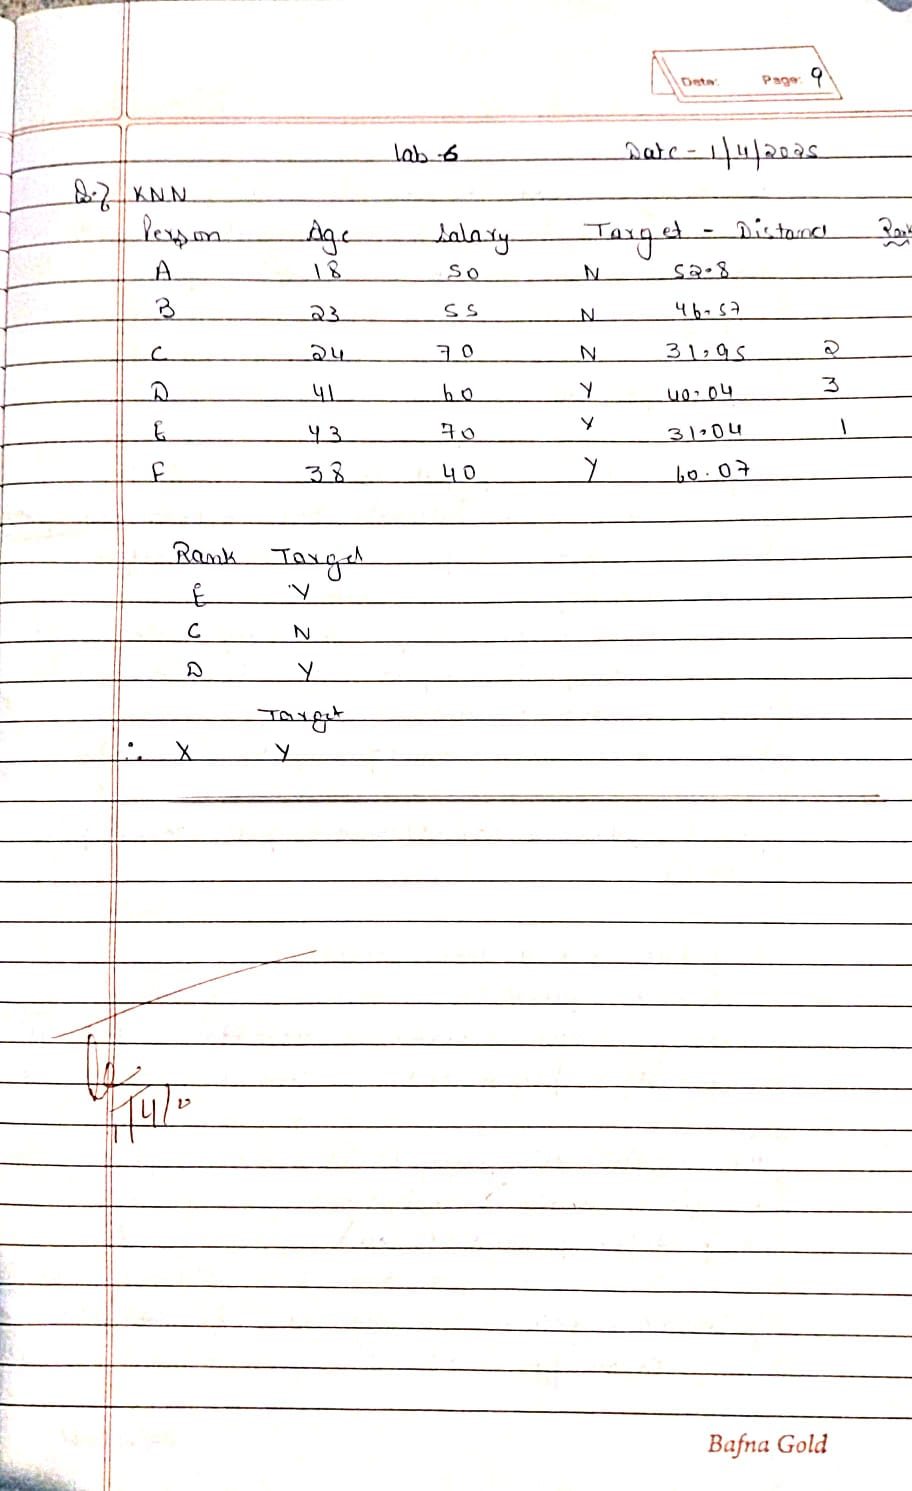 Date: Page: 9
Lab-6 Date - 1/4/2025
Q.7 KNN
Person Age Salary Target - Distance Rank
A 18 50 N 52.8
B 23 55 N 46.57
C 24 70 N 31.95 2
D 41 60 Y 40.04 3
E 43 70 Y 31.04 1
F 38 40 Y 60.07
Rank Target
E Y
C N
D Y
Target
∴ X Y
Bafna Gold